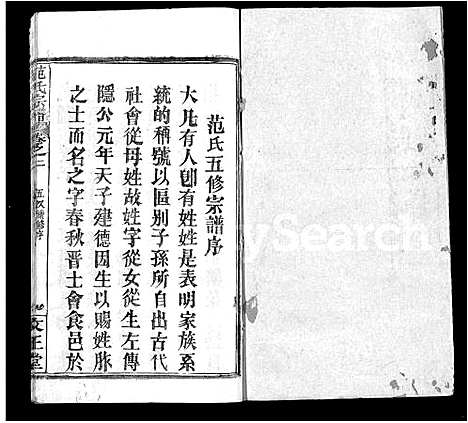 范氏五修宗譜序
大凡有人卽有姓姓是表明家族系
統的稱號以區别子孫所自出古代
社會從母姓故姓字從女從生左傳
隱公元年天子建德因生以賜姓胙
之士而名之字春秋晋士會食邑於
范氏宗譜 卷之二
文正堂
MySearch